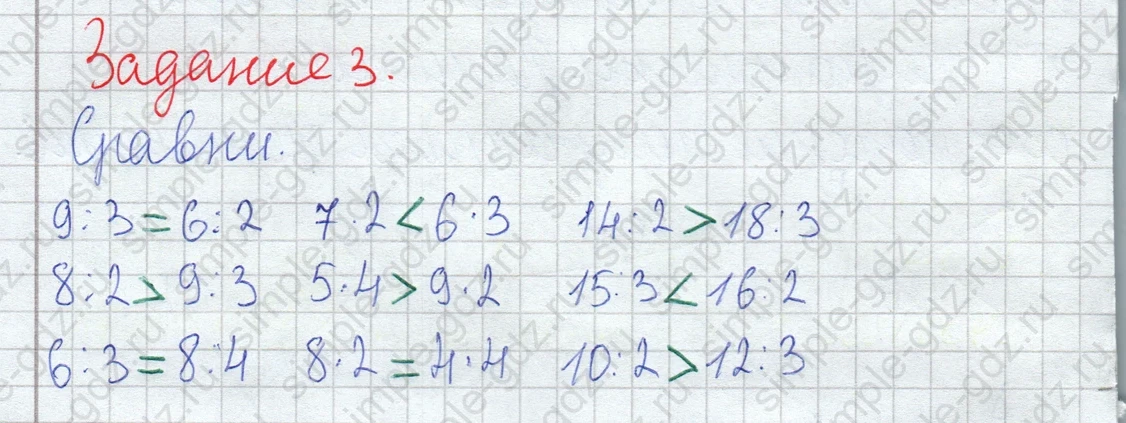 Задание 3.
Сравни.
9:3=6:2 7·2<6·3 14:2>18:3
8:2>9:3 5·4>9·2 15:3<16:2
6:3=8:4 8·2=4·4 10:2>12:3
simple-gdz.ru